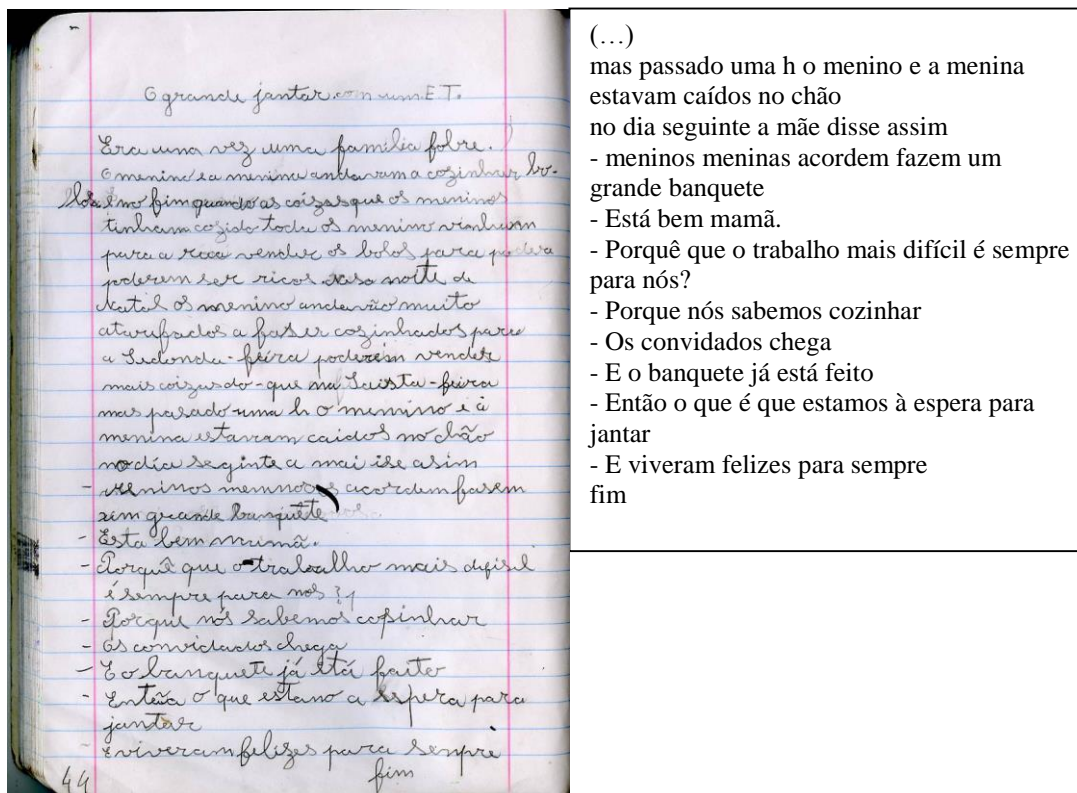 O grande jantar com um E T.
Era uma vez uma família fobre.
O menino e a menina andavam a cozinhar bo-
los e no fim quando as coizas que os meninos
tinham cozido todu os menino vinham
para a rua vender os bolos para
poderem ser ricos nesa noite de
Natal os menino andavão muito
atarufados a faser cozinhados para
a Segonda-feira poderem vender
mais coizas do-que na Saista-feira
mas pasado uma h o menino e a
menina estavam caidos no chão
no dia seginte a mai ise asim
- meninos meninas acordem fasem
um grande banquête
- Esta bem mumã.
- Porquê que o trabalho mais difisil
é sempre para nos?
- Porque nós sabemos cosinhar
- Os convidados chega
- E o banquete já stá faito
- Entãa o que estano a espera para
jantar
- E viveram felizes para senpre
fim
44
(…)
mas passado uma h o menino e a menina
estavam caídos no chão
no dia seguinte a mãe disse assim
- meninos meninas acordem fazem um
grande banquete
- Está bem mamã.
- Porquê que o trabalho mais difícil é sempre
para nós?
- Porque nós sabemos cozinhar
- Os convidados chega
- E o banquete já está feito
- Então o que é que estamos à espera para
jantar
- E viveram felizes para sempre
fim